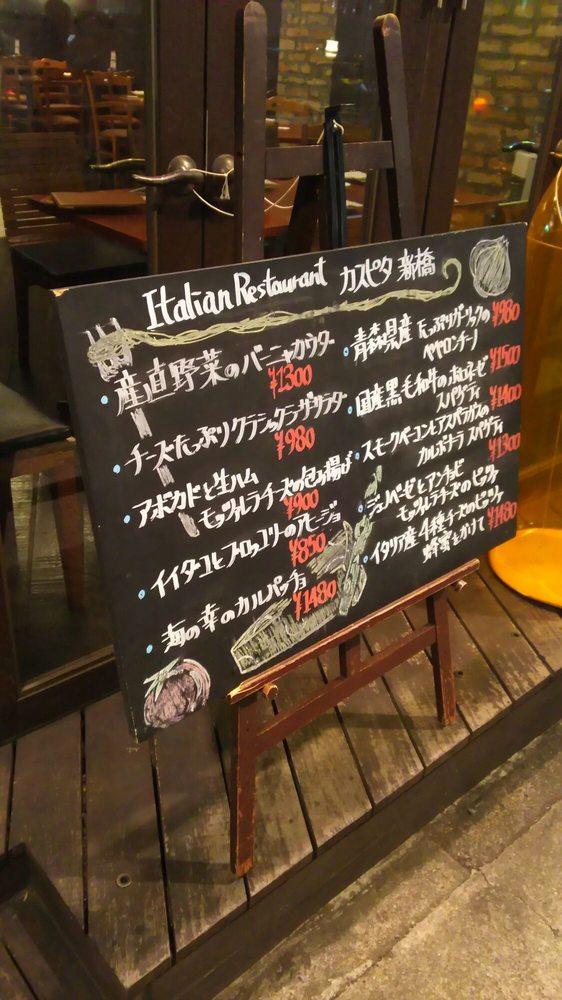 Italian Restaurant カスピタ 新橋
産直野菜のバーニャカウダー
¥1300
チーズたっぷりクラシックシーザーサラダ
¥980
アボカドと生ハム
モッツァレラチーズの包み揚げ
¥900
イイダコとブロッコリーのアヒージョ
¥850
海の幸のカルパッチョ
¥1480
青森県産 たっぷりガーリックの
ペペロンチーノ
¥980
国産黒毛和牛のボロネーゼ
スパゲティ
¥1500
スモークベーコンとアスパラガスの
カルボナーラ スパゲティ
¥1400
ジェノベーゼとアンチョビ
モッツァレラチーズのピッツァ
¥1300
イタリア産 4種チーズのピッツァ
蜂蜜をかけて
¥1480